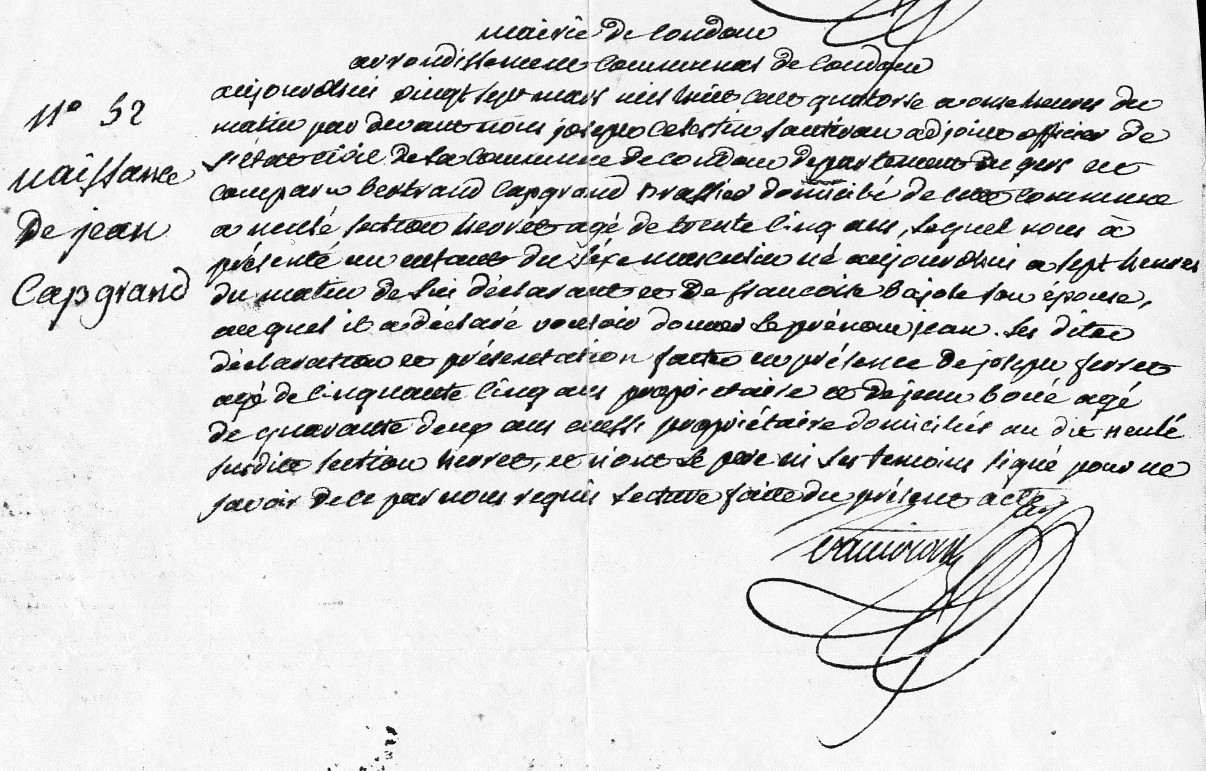 mairie de Condom
arrondissement Communal de Condom
N° 52
naissance
De jean
Capgrand
aujourdhui vingt sept mars mil huit cent quatorse a onse heures du
matin par devant nous joseph Celestin adjoint officier de
l'état civil de la Commune de Condom departement du gers est
comparu bertrand Capgrand Brassier domicilié de cette Commune
a section herret agé de trente Cinq ans, lequel nous à
présenté un enfant du séxe masculin né aujourdhui a sept heures
du matin de lui déclarant et De francoise bajole son épouse,
auquel il a déclaré vouloir donner le prénom jean. les dites
déclaration et présentation faites en présence de joseph ferret
agé de Cinquante Cinq ans propriétaire et De jean boué agé
de quarante deux ans aussi propriétaire domiciliés au dit
susdite section herret, et n'ont le pere ni les temoins signé pour ne
savoir de ce par nous requis lecture faite du présent acte